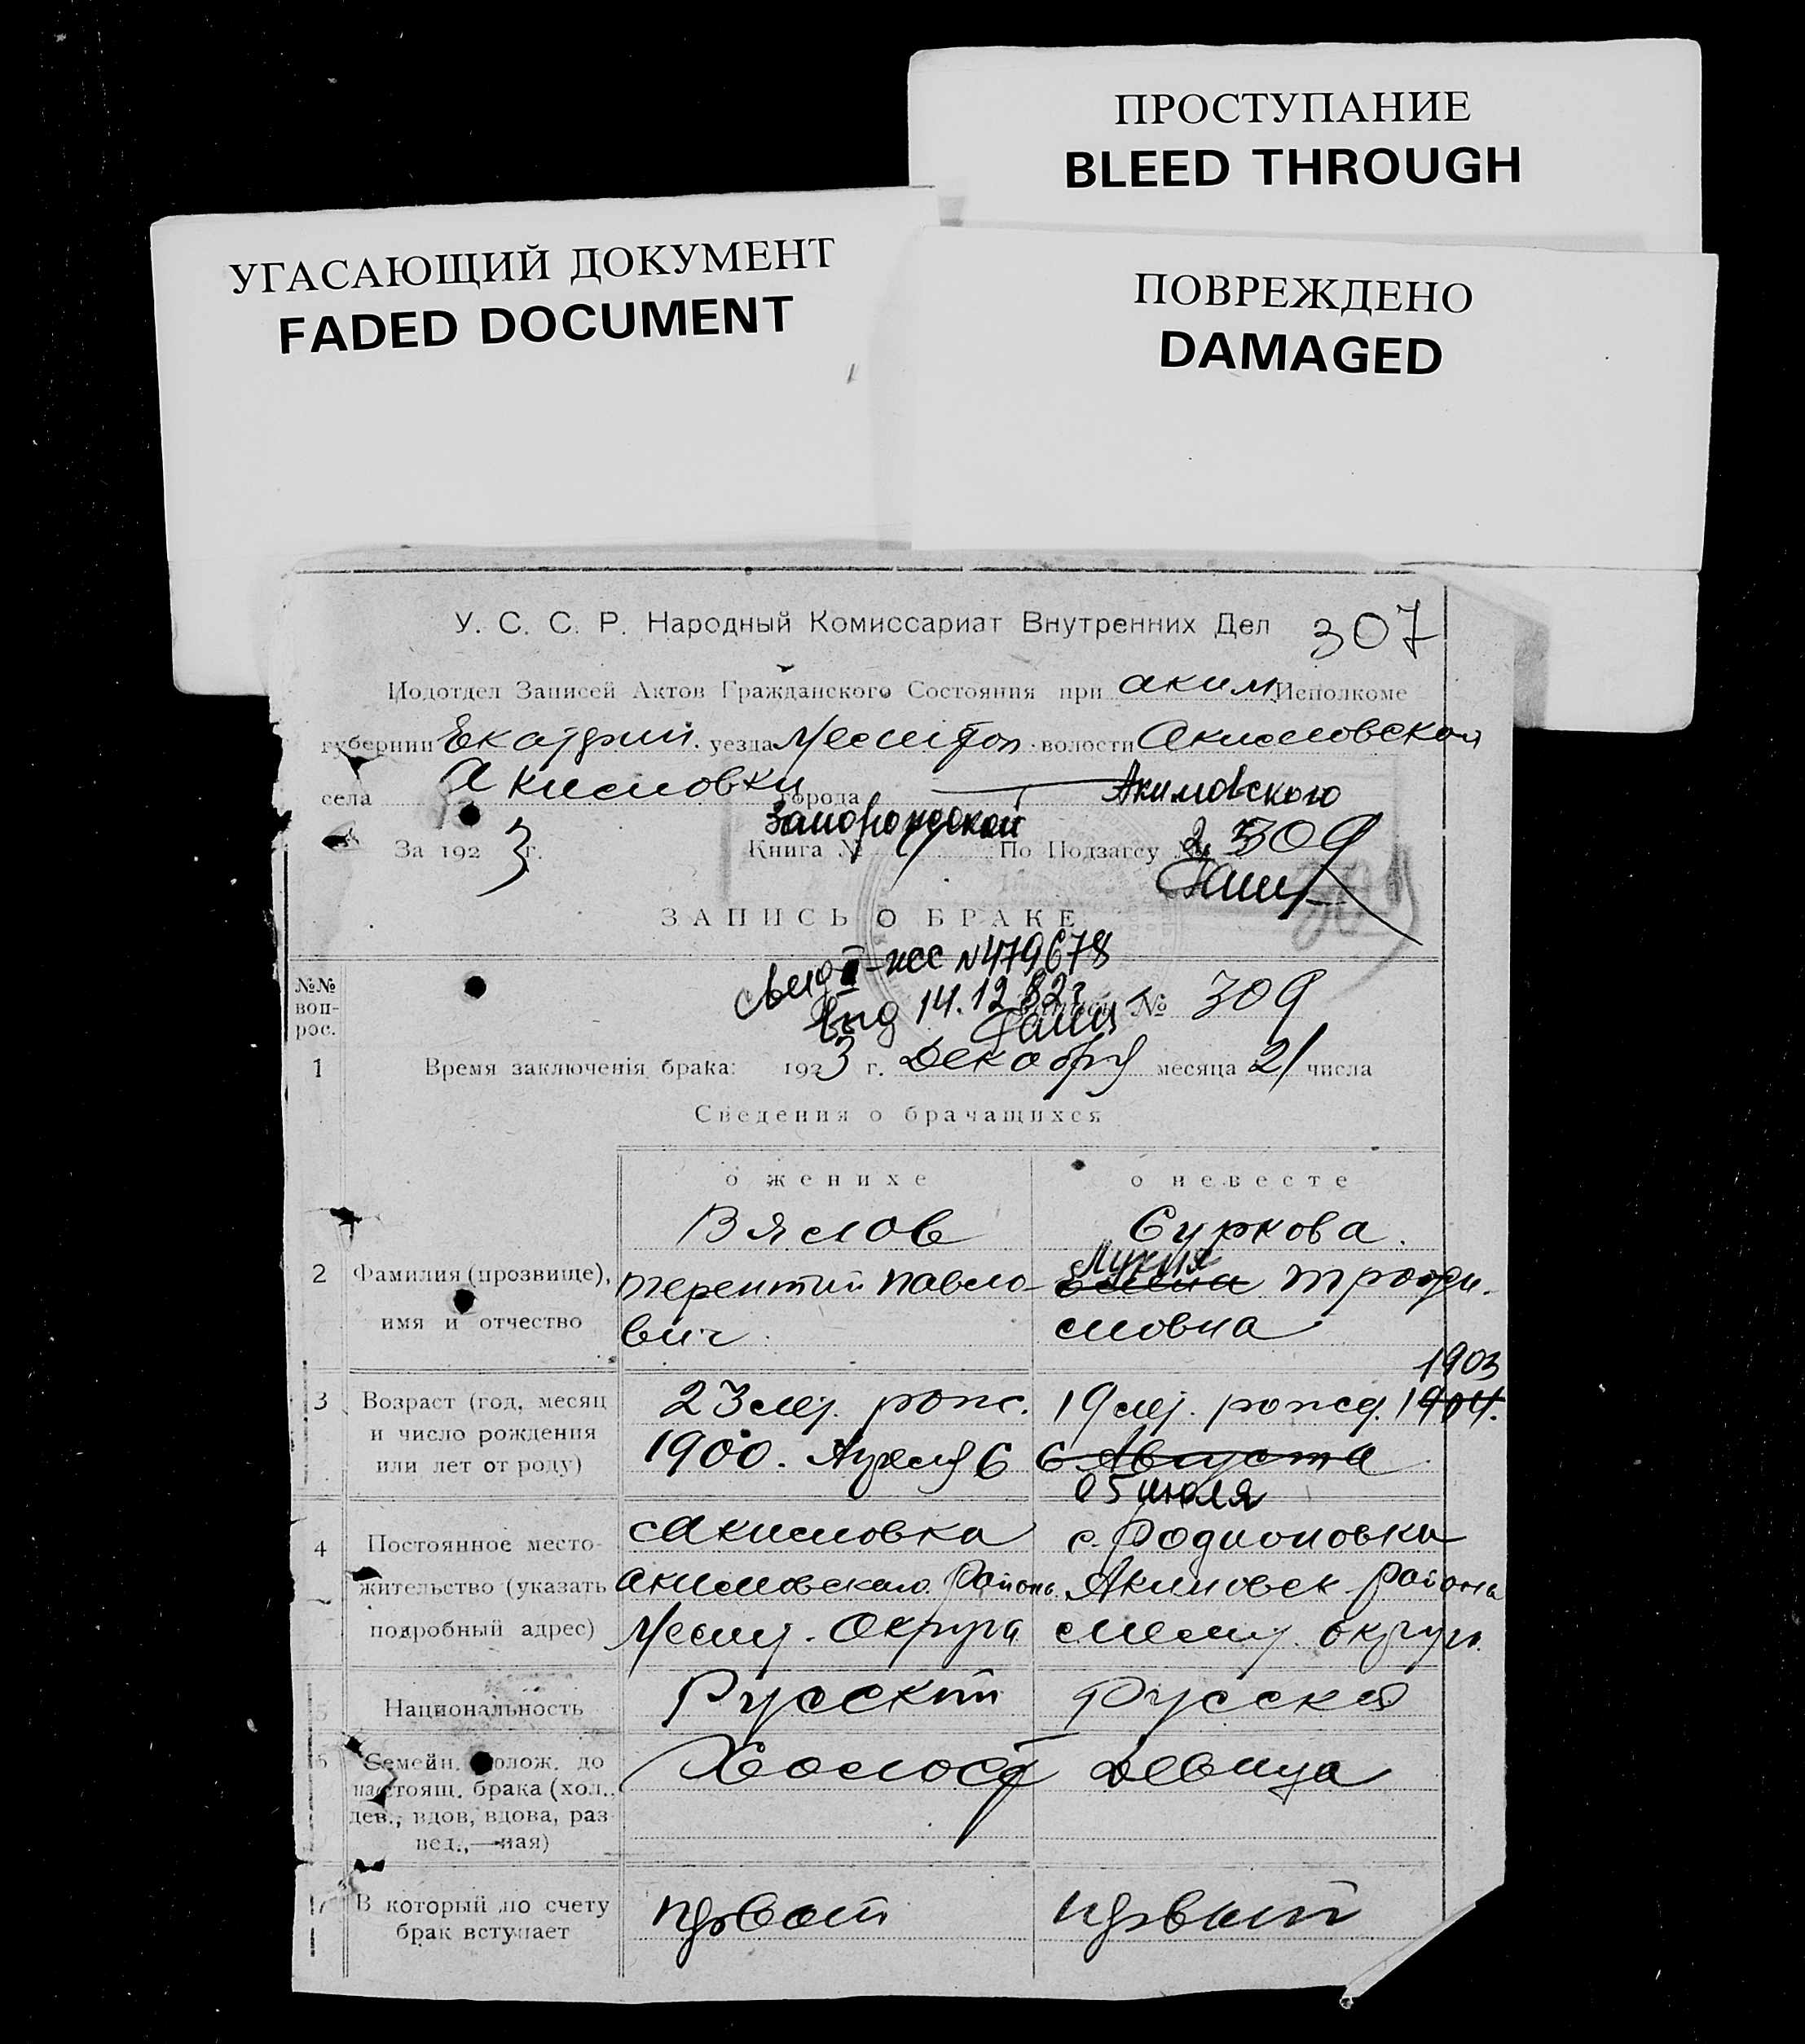 ПРОСТУПАНИЕ
BLEED THROUGH
УГАСАЮЩИЙ ДОКУМЕНТ
FADED DOCUMENT
ПОВРЕЖДЕНО
DAMAGED
У. С. С. Р. Народный Комиссариат Внутренних Дел 307
Подотдел Записей Актов Гражданского Состояния при аким Исполкоме
губернии Екатрин. уезда Мелитоп. волости Акимовской
села Акимовки города
Акимовского
Запорожской
За 1923 г. Книга № По Подзагсу № 309
ЗАПИСЬ О БРАКЕ
№№ воп- рос.
479678
14.12.82г
№ 309
1 Время заключенія брака: 1923 г. Декабря месяца 21 числа
Сведения о брачащихся
о женихе о невесте
Вялов Суркова.
Лукия
2 Фамилия (прозвище), Терентий Павло- Трофи-
имя и отчество вич мовна
1903
3 Возраст (год, месяц 23 лет. рож. 19 лет. рожд. 1904.
и число рождения 1900. Апреля 6 6 Августа
или лет от роду) 05 июля
4 Постоянное место- с Акимовка с. Родионовка
жительство (указать Акимовского Района Акимовск района
подробный адрес) Мелит. Округа Мелит. округа
5 Национальность Русский Русская
6 Семейн. полож. до Холост Девица
настоящ. брака (хол.,
дев., вдов, вдова, раз-
вед.,—ная)
7 В который по счету первый первый
брак вступает